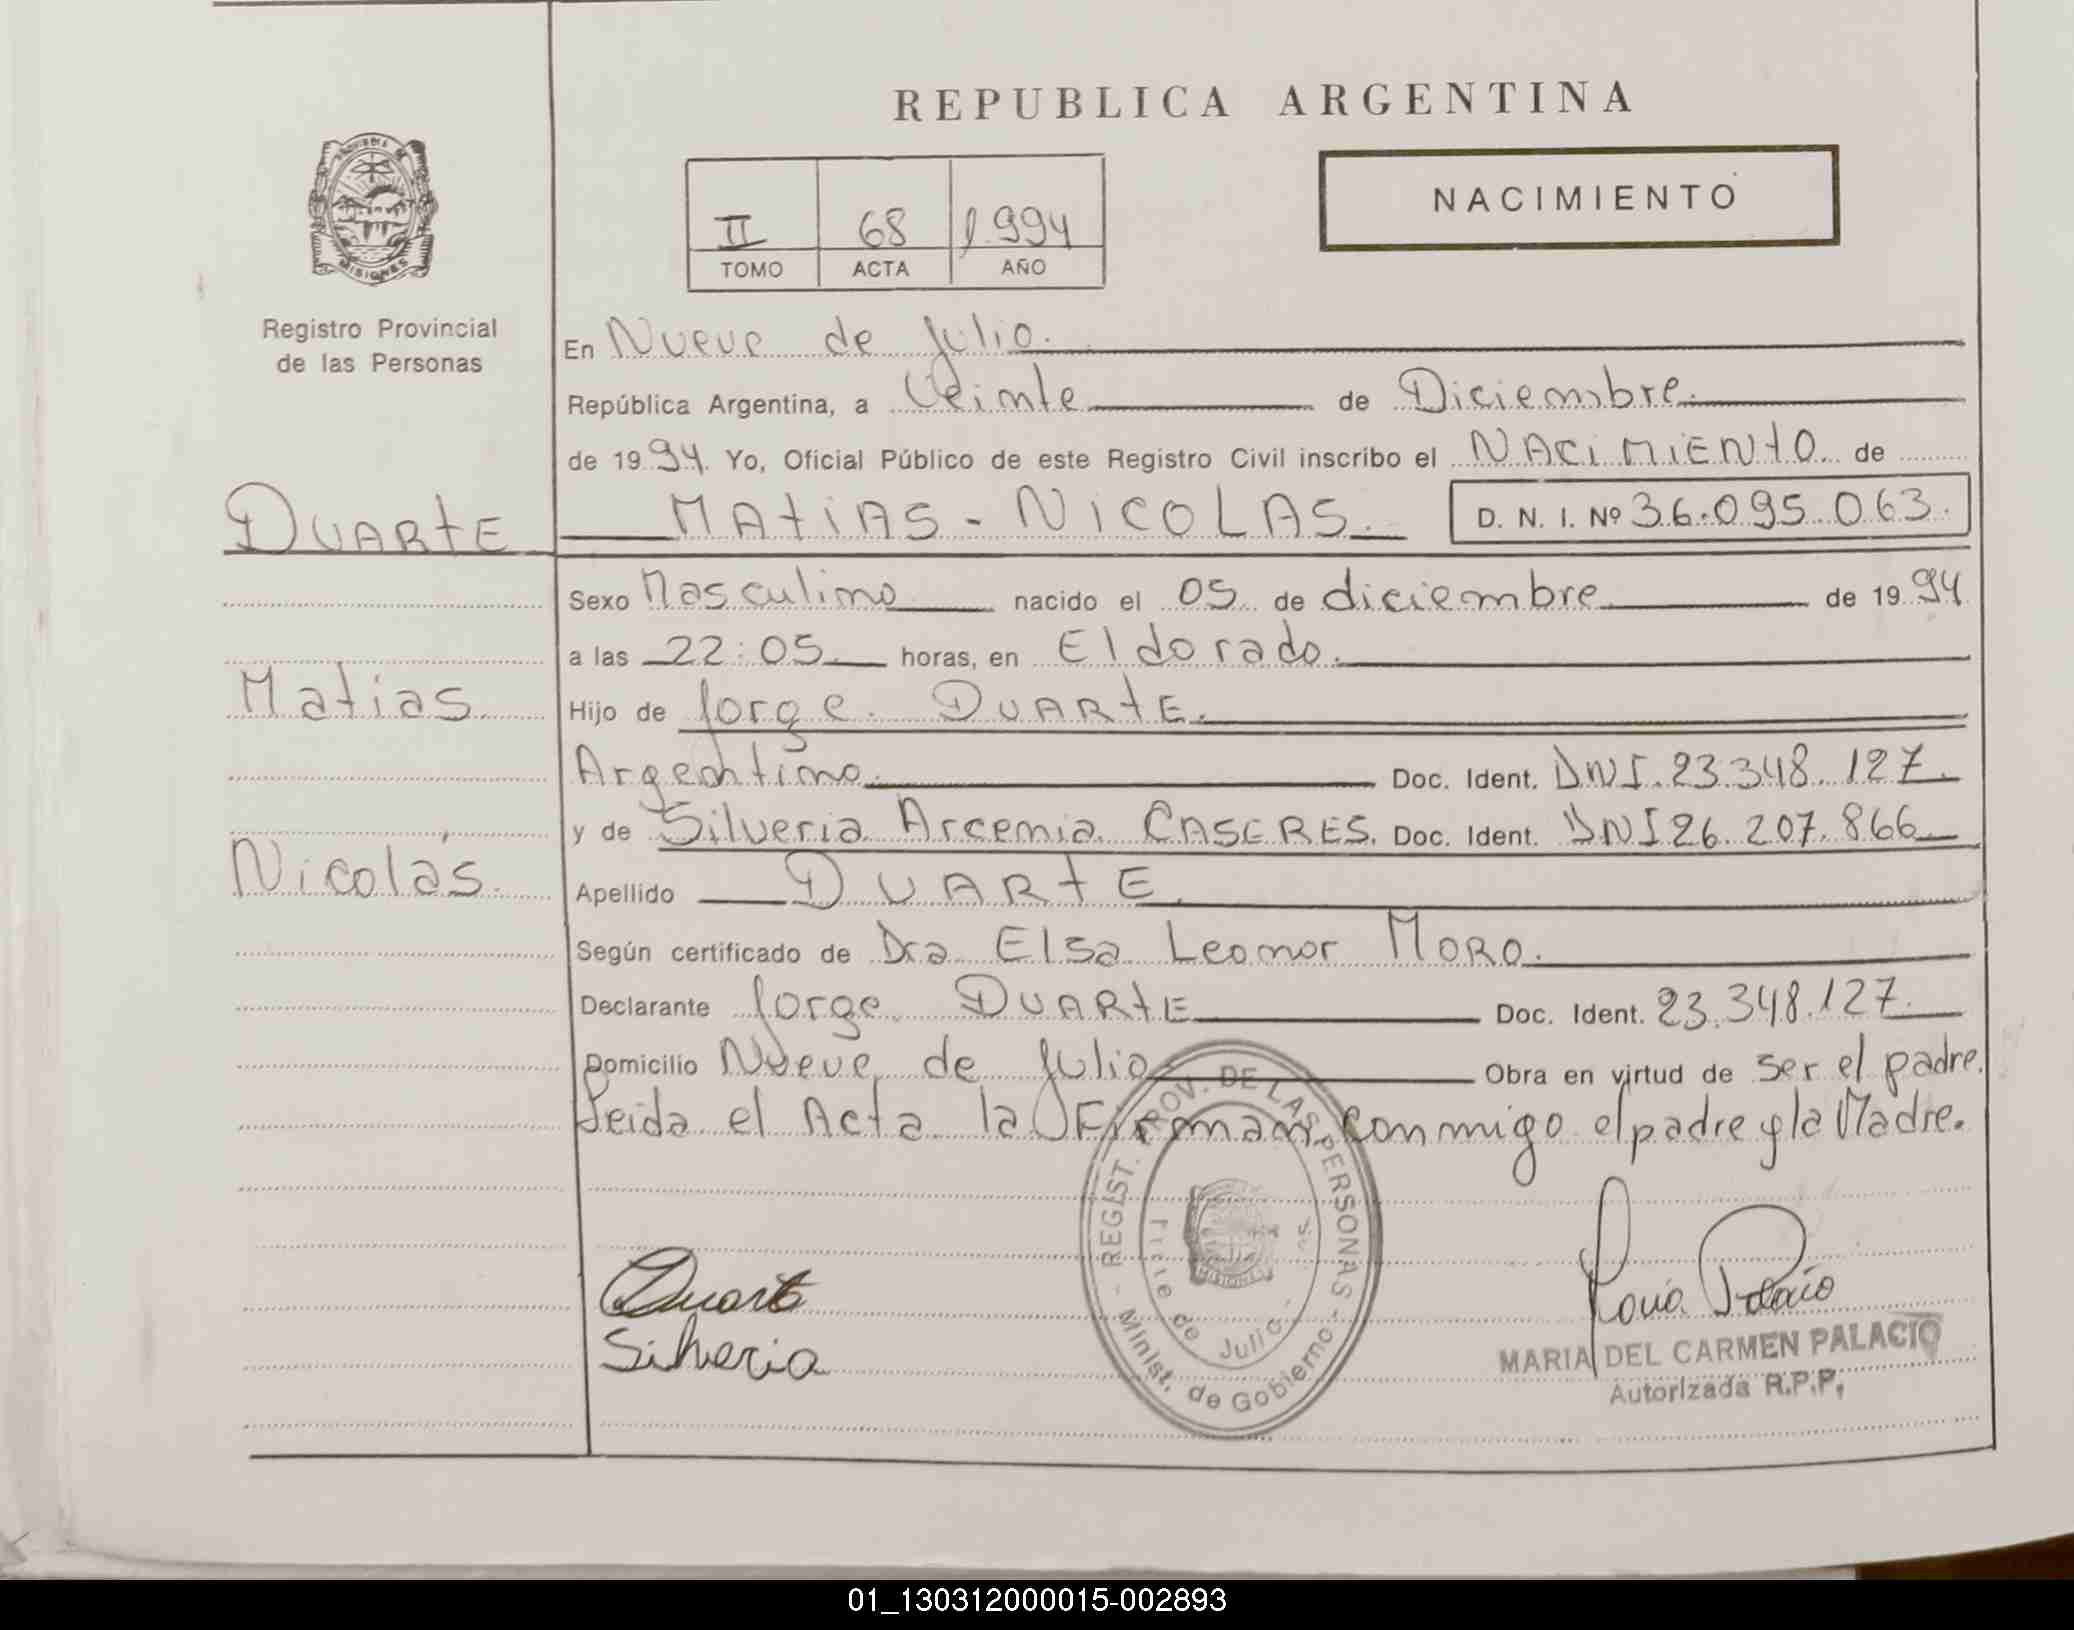 REPUBLICA ARGENTINA
NACIMIENTO
II 68 1994
TOMO ACTA AÑO
MISIONES
Registro Provincial
de las Personas
En Nueve de Julio.
República Argentina, a Veinte de Diciembre.
de 1994. Yo, Oficial Público de este Registro Civil inscribo el NACIMIENTO de
DUARTE
MATIAS - NICOLAS. D. N. I. Nº 36.095.063.
Sexo Masculino nacido el 05 de diciembre de 1994
a las 22:05. horas, en Eldorado.
Matias
Hijo de Jorge DUARTE.
Argentino. Doc. Ident. DNI.23.348.127.
y de Silveria Arcenia CASERES. Doc. Ident. DNI 26.207.866
Nicolás.
Apellido DUARTE.
Según certificado de Dra Elsa Leonor MORO.
Declarante Jorge DUARTE Doc. Ident. 23.348.127.
Domicilio Nueve de Julio Obra en virtud de ser el padre.
Leida el Acta la Firman conmigo el padre y la Madre.
REGIST. PROV. DE LAS PERSONAS
Minist. de Gobierno
de Julio
MISIONES
Duarte
Silveria
Maria Palacio
MARIA DEL CARMEN PALACIO
Autorizada R.P.P.
01_130312000015-002893